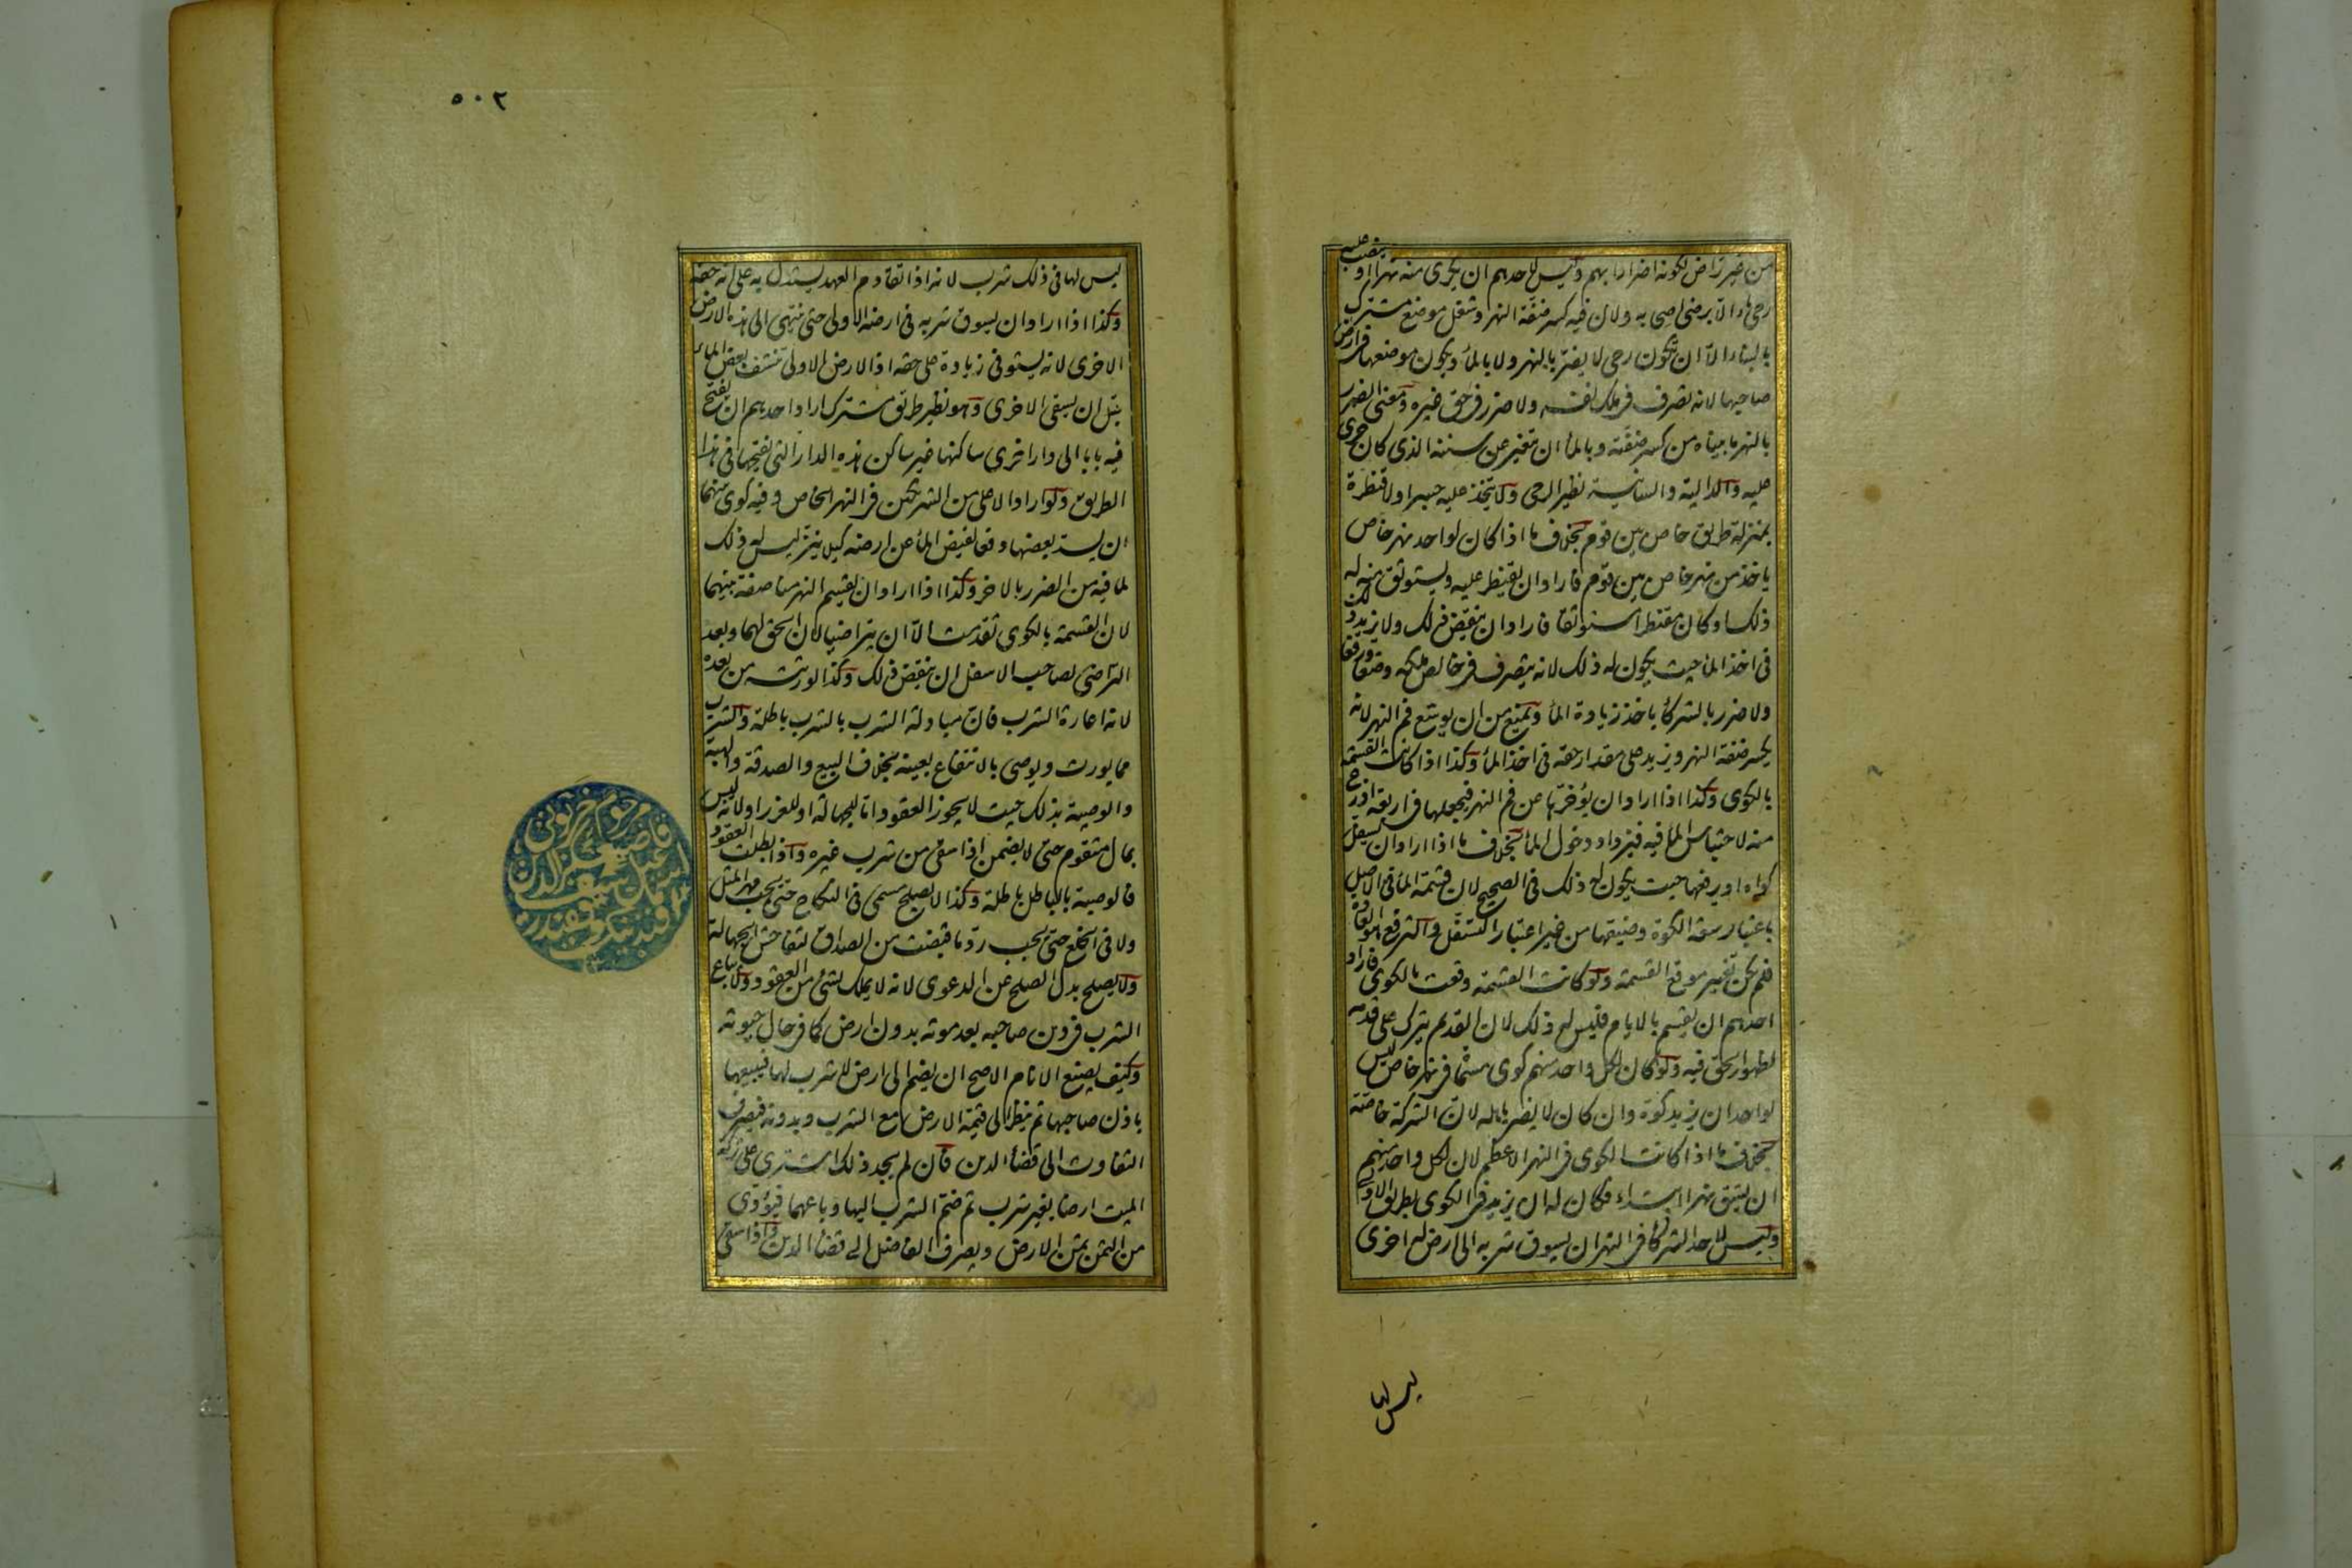 من غير تراض لكونه اضرارا بهم وليس لاحدهم ان يكرى منه نهرا او ينصب عليه
رحى ماء الا برضى اصحابه ولان فيه كسر ضفة النهر وشغل موضع مشترك
بالبناء الا ان يكون رحى لا يضر بالنهر ولا بالماء ويكون موضعها فى ارض
صاحبها لانه تصرف فى ملك نفسه ولا ضرر فى حق غيره ومعنى الضرر
بالنهر ما بيناه من كسر ضفته وبالماء ان يتغير عن سننه الذى كان جرى
عليه والدالية والسانية نظير الرحى ولا يتخذ عليه جسرا ولا قنطرة
بمنزلة طريق خاص بين قوم بخلاف ما اذا كان لواحد نهر خاص
ياخذ من نهر خاص بين قوم فاراد ان يقنطر عليه ويستوثق منه له
ذلك او كان مقنطرا مستوثقا فاراد ان ينقض ذلك ولا يزيد ذلك
فى اخذ الماء حيث يكون له ذلك لانه يتصرف فى خالص ملكه وضعا ورفعا
ولا ضرر بالشركاء باخذ زيادة الماء ويمنع من ان يوسع فم النهر لانه
يكسر ضفة النهر ويزيد على مقدار حقه فى اخذ الماء وكذا اذا كانت القسمة
بالكوى وكذا اذا اراد ان يؤخرها عن فم النهر فيجعلها فى اربعة اذرع
منه لاحتباس الماء فيه فيزداد دخول الماء بخلاف ما اذا اراد ان يسفل
كواه او يرفعها حيث يكون له ذلك فى الصحيح لان قسمة الماء فى الاصل
باعتبار سعة الكوة وضيقها من غير اعتبار التسفل والترفع هو العادة
فلم يكن تغيير موضع القسمة ولو كانت القسمة وقعت بالكوى فاراد
احدهم ان يقسم بالايام فليس له ذلك لان القديم يترك على قدمه
لظهور الحق فيه ولو كان لكل واحد منهم كوى مسماة فى نهر خاص ليس
لواحد ان يزيد كوة وان كان لا يضر باهله لان الشركة خاصة
بخلاف ما اذا كانت الكوى فى النهر الاعظم لان لكل واحد منهم
ان يشق نهرا ابتداء فكان له ان يزيد فى الكوى بطريق الاولى
وليس لاحد الشركاء فى النهر ان يسوق شربه الى ارض له اخرى
ليس لها
٥٠٢
ليس لها فى ذلك شرب لانه اذا تقادم العهد يستدل به على انه حقه
وكذا اذا اراد ان يسوق شربه فى ارضه الاولى حتى ينتهى الى هذه الارض
الاخرى لانه يستوفى زيادة على حقه اذ الارض الاولى تنشف بعض الماء
قبل ان يسقى الاخرى وهو نظير طريق مشترك اراد احدهم ان يفتح
فيه بابا الى دار اخرى ساكنها غير ساكن هذه الدار التى يفتحها فى هذا
الطريق ولو اراد الاعلى من الشريكين فى النهر الخاص وفيه كوى بينهما
ان يسد بعضها دفعا لفيض الماء عن ارضه كيلا ينز ليس له ذلك
لما فيه من الضرر بالاخر وكذا اذا اراد ان يقسم النهر مناصفة بينهما
لان القسمة بالكوى تقدمت الا ان يتراضيا لان الحق لهما وبعد
التراضى لصاحب الاسفل ان ينقض ذلك وكذا لورثته من بعده
لانه اعارة الشرب فان مبادلة الشرب بالشرب باطلة والشرب
مما يورث ويوصى بالانتفاع بعينه بخلاف البيع والصدقة والهبة
والوصية بذلك حيث لا يجوز العقود اما للجهالة او للغرر او لانه ليس
بمال متقوم حتى لا يضمن اذا سقى من شرب غيره واذا بطلت العقود
فالوصية بالباطل باطلة وكذا لا يصلح مسمى فى النكاح حتى يجب مهر المثل
ولا فى الخلع حتى يجب رد ما قبضت من الصداق لتفاحش الجهالة
ولا يصلح بدل الصلح عن الدعوى لانه لا يملك بشئ من العقود ولا يباع
الشرب فى دين صاحبه بعد موته بدون ارض كما فى حال حيوته
وكيف يصنع الامام الاصح ان يضم الى ارض لا شرب لها فيبيعها
باذن صاحبها ثم ينظر الى قيمة الارض مع الشرب وبدونه فيصرف
التفاوت الى قضاء الدين فان لم يجد ذلك اشترى على تركة
الميت ارضا بغير شرب ثم ضم الشرب اليها وباعهما فيؤدى
من الثمن ثمن الارض ويصرف الفاضل الى قضاء الدين واذا سقى